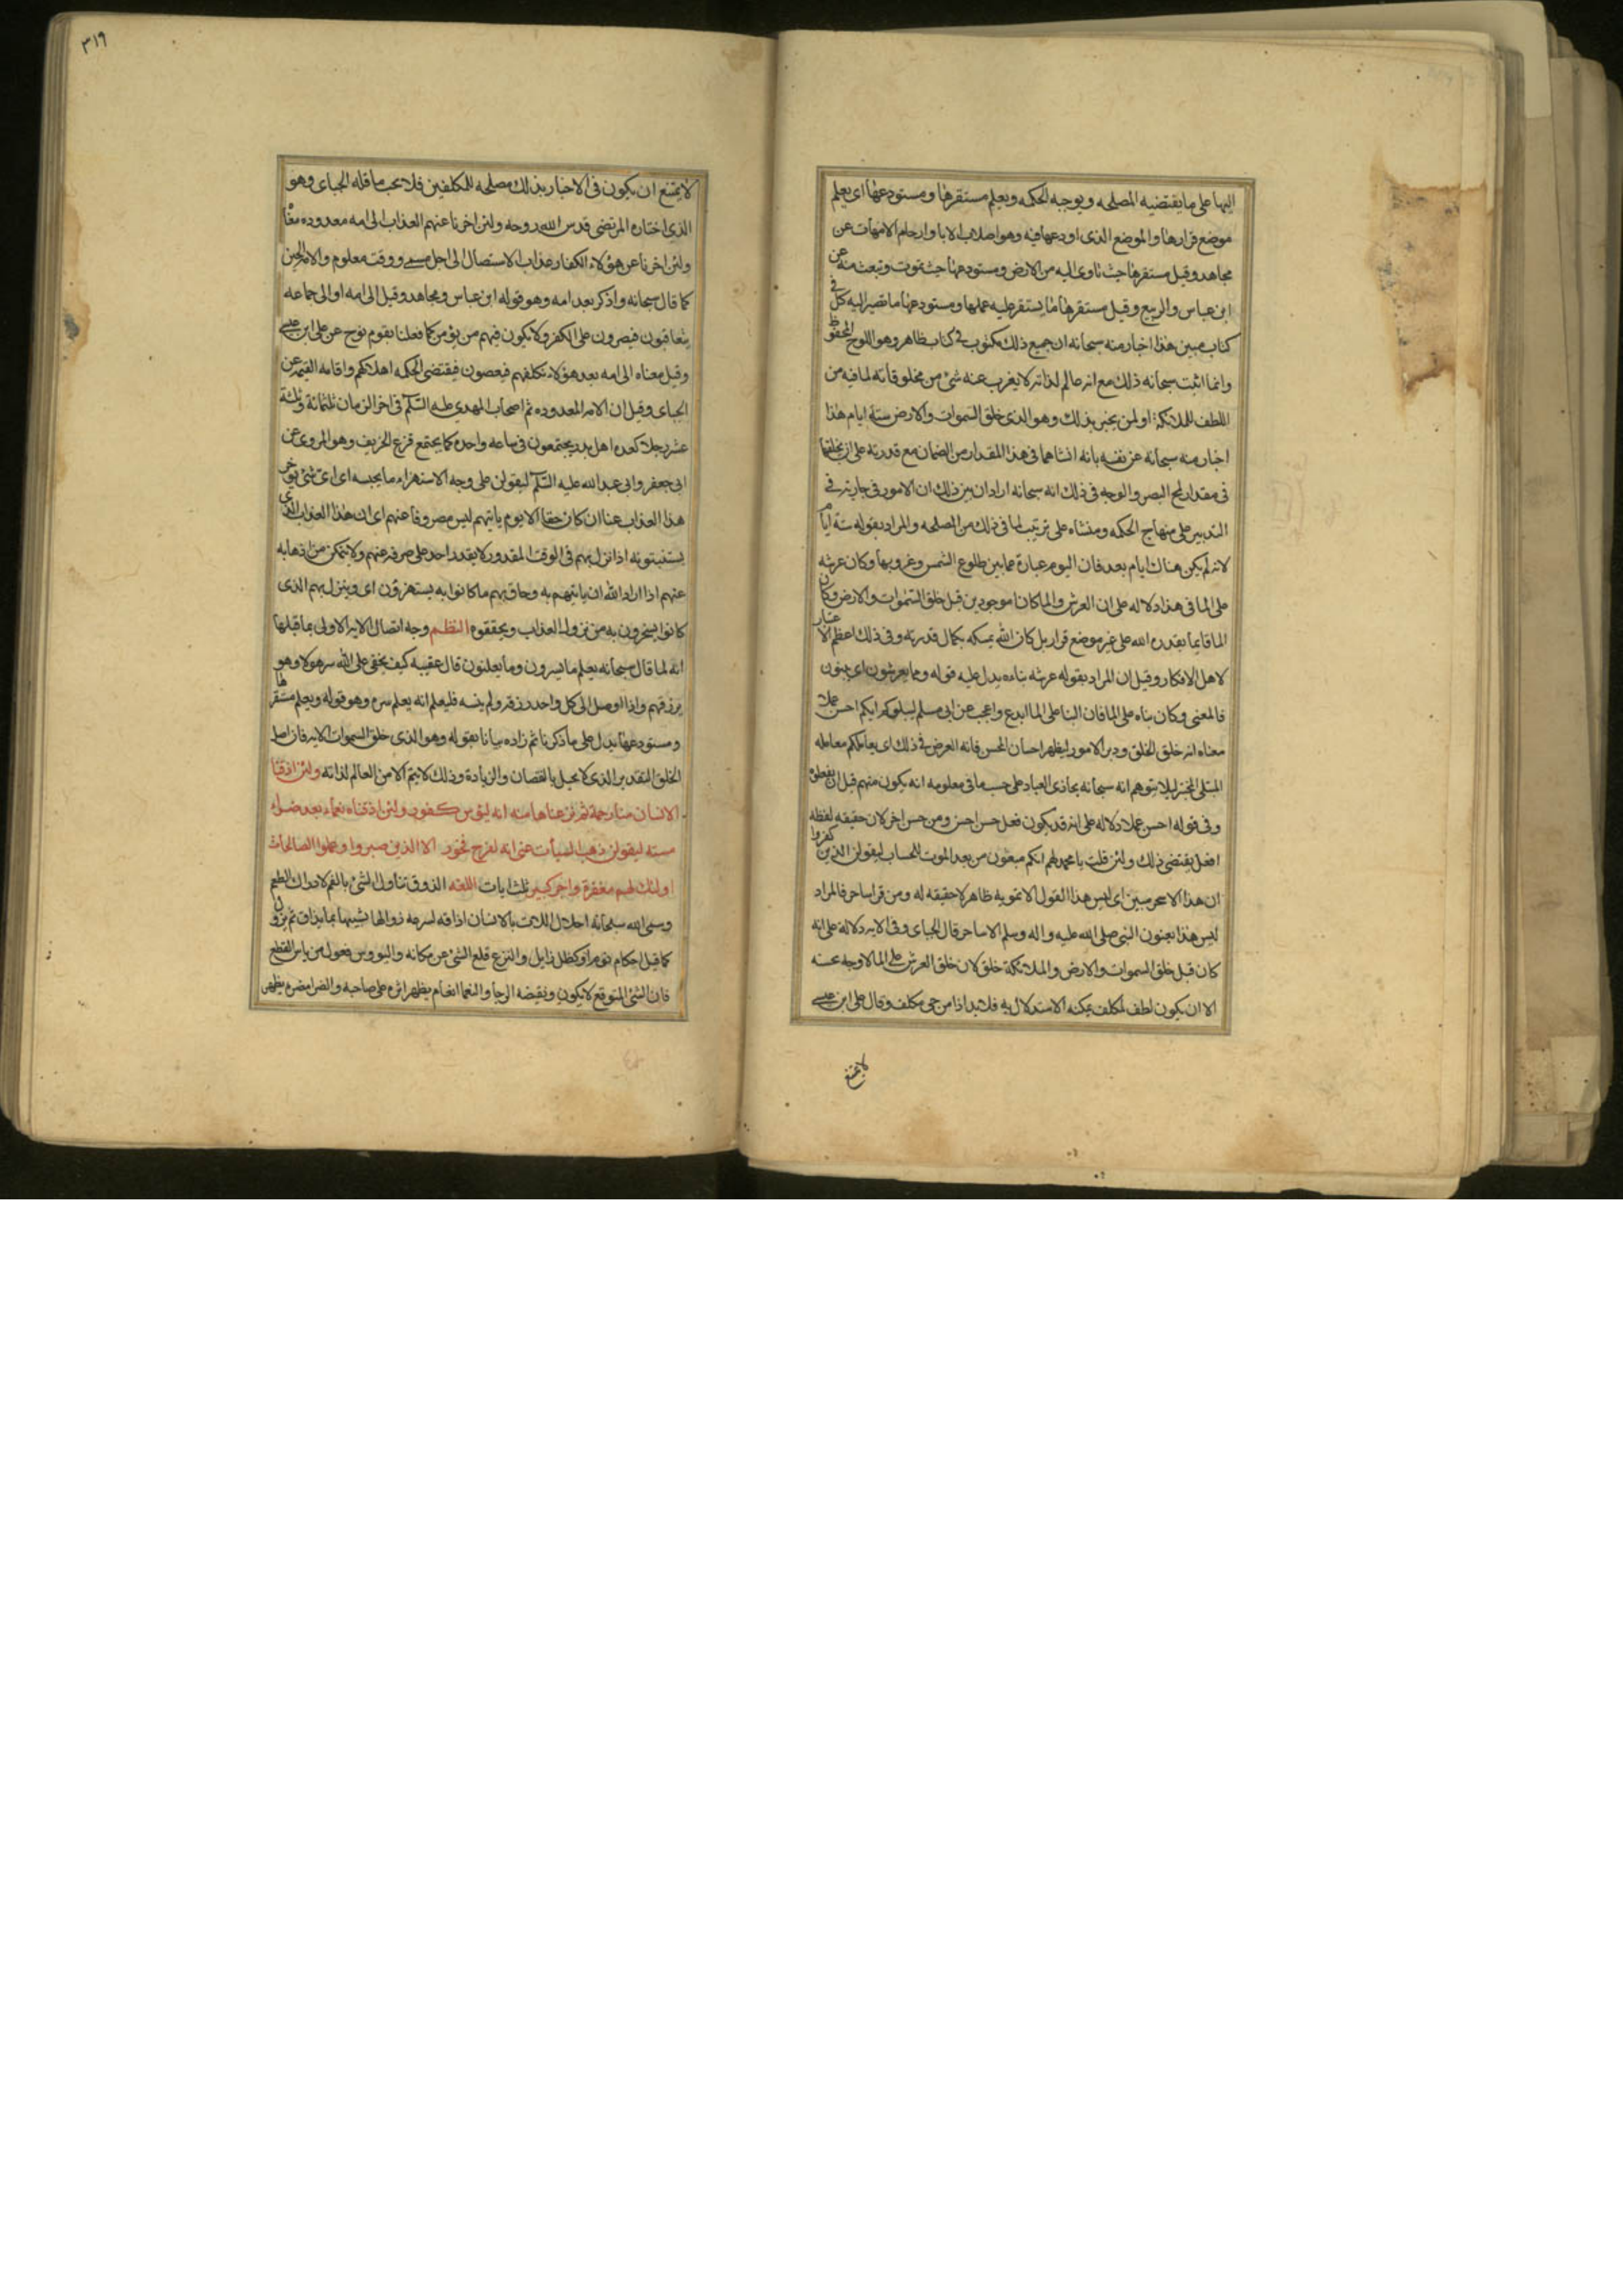 اليها على ما يقتضيه المصلحه و يوجبه الحكمه و يعلم مستقرها و مستودعها اى يعلم
موضع قرارها والموضع الذى اودعها فيه وهو اصلاب الابا وارحام الامهات عن
مجاهد وقيل مستقرها حيث تاوى اليه من الارض ومستودعها حيث تموت وتبعث منه عن
ابن عباس والربيع وقيل مستقرها ما يستقر عليه عملها ومستودعها ما تصير اليه كل فى
كتاب مبين هذا اخبار منه سبحانه ان جميع ذلك مكتوب فى كتاب ظاهر وهو اللوح المحفوظ
وانما اثبت سبحانه ذلك مع انه عالم لذاته لا يغرب عنه شئ من مخلوقاته لما فيه من
اللطف للملائكة او لمن يخبر بذلك وهو الذى خلق السموات والارض ستة ايام هذا
اخبار منه سبحانه عن نفسه بانه انشاهما فى هذا المقدار من الضمان مع قدرته على ان يخلقهما
فى مقدار لمح البصر والوجه فى ذلك انه سبحانه اراد ان يبين ذلك ان الامور فى جاريه فى
التدبير على منهاج الحكمه ومنشاه على ترتيب لما فى ذلك من المصلحه والمراد بقوله ستة ايام
لانه لم يكن هناك ايام بعد فان اليوم عبارة عما بين طلوع الشمس وغروبها وكان عرشه
على الما فى هذا دلاله على ان العرش والما كانا موجودين قبل خلق السموات والارض وكان
الما قايما بقدره الله على غير موضع قرار بل كان الله يمسكه بكمال قدرته وفى ذلك اعظم الاعتبار
لاهل الافكار وقيل ان المراد بقوله عرشه بناءه يدل عليه قوله وما يعرشون اى يبنون
فالمعنى وكان بناه على الما فان البنا على الما ابدع واعجب عن ابى مسلم ليبلوكم ايكم احسن عملا
معناه انه خلق الخلق ودبر الامور ليظهر احسان المحسن فانه الغرض فى ذلك اى يعاملكم معامله
المبتلى المختبر ليلا يتوهم انه سبحانه يجازى العباد على حسب ما فى معلومه انه يكون منهم قبل ان يفعلوه
وفى قوله احسن عملا دلاله على انه قد يكون فعل حسن احسن من حسن اخر لان حقيقه لفظه
افعل يقتضى ذلك ولئن قلت يا محمد لهم انكم مبعثون من بعد الموت للحساب ليقولن الذين كفروا
ان هذا الا سحر مبين اى ليس هذا القول الا تمويه ظاهر لا حقيقه له ومن قرا ساحر فالمراد
ليس هذا يعنون النبى صلى الله عليه واله وسلم الا ساحر قال الجباى وفى الايه دلالة على انه
كان قبل خلق السموات والارض والملائكة خلق لان خلق العرش على الما لا وجه لحسنه
الا ان يكون لطف لمكلف يمكنه الاستدلال به فلا بد اذا من حى مكلف وقال على ابن عيسى
لا يمتنع
٣١٩
لا يمتنع ان يكون فى الاخبار بذلك مصلحه للمكلفين فلا يجب ما قاله الجباى وهو
الذى اختاره المرتضى قدس الله روحه ولئن اخرنا عنهم العذاب الى امه معدوده معناه
ولئن اخرنا عن هؤلاء الكفار عذاب الاستصال الى اجل مسمى ووقت معلوم والامه الحين
كما قال سبحانه واذكر بعد امه وهو قوله ابن عباس ومجاهد وقيل الى امه او الى جماعه
يتعاقبون فيصرون على الكفر ولا يكون فيهم من يؤمن كما فعلنا بقوم نوح عن على ابن عيسى
وقيل معناه الى امه بعد هؤلاء نكلفهم فيعصون فيقتضى الحكمه اهلاكهم واقامه القيمه عن
الجباى وقيل ان الامه المعدوده ثم اصحاب المهدي عليه السلم فى اخر الزمان ثلثمائة وثلثة
عشر رجلا كعده اهل بدر يجتمعون فى ساعه واحده كما يجتمع قزع الخريف وهو المروى عن
ابى جعفر وابى عبد الله عليه السلم ليقولن على وجه الاستهزاء ما يحبسه اى اى شئ يوخر
هذا العذاب عنا ان كان حقا الا يوم ياتيهم ليس مصروفا عنهم اى ان هذا العذاب الذى
يستنبئونه اذا نزل بهم فى الوقت المقدور لا يقدر احد على صرفه عنهم ولا يتمكن من اذهابه
عنهم اذا اراد الله ان ياتيهم به وحاق بهم ما كانوا به يستهزؤن اى وينزل بهم الذى
كانوا يسخرون به من نزول العذاب ويحققوه النظم وجه اتصال الايه الاولى بما قبلها
انه لما قال سبحانه يعلم ما يسرون وما يعلنون قال عقيبه كيف يخفى على الله سر هولا وهو
يرزقهم واذا اوصل الى كل واحد رزقه ولم ينسه فليعلم انه يعلم سره وهو قوله ويعلم مستقرها
ومستودعها يدل على ما ذكرنا ثم زاده بيانا بقوله وهو الذى خلق السموات الايه فان اصل
الخلق التقدير الذى لا يحيل بالنقصان والزيادة وذلك لا يتم الا من العالم لذاته ولئن اذقنا
الانسان منا رحمة ثم نزعناها منه انه ليؤس كفور ولئن اذقناه نعماء بعد ضراء
مسته ليقولن ذهب السيأت عنى انه لفرح فخور الا الذين صبروا وعملوا الصالحات
اولئك لهم مغفرة واجر كبير ثلث ايات اللغه الذوق تناول الشئ بالفم لادراك الطعم
وسمى الله سبحانه احلال اللذات بالانسان اذاقه لسرعه زوالها تشبيها بما يذاق ثم يزول
كما قيل احكام نوم او كظل زايل والنزع قلع الشئ عن مكانه واليؤوس فعول من ياس القطع
فان الشئ المتوقع لا يكون ونقيضه الرجا والنعما انعام يظهر اثره على صاحبه والضرا مضره يظهر